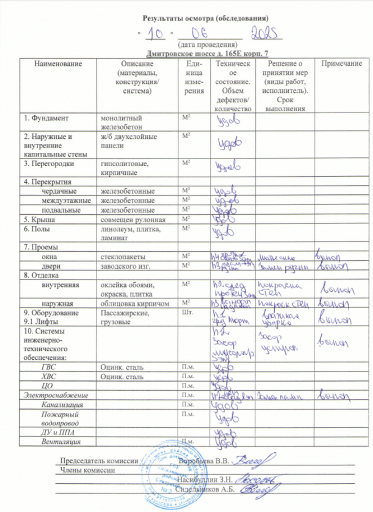 Результаты осмотра (обследования)
" 10 - 06 2025
(дата проведения)
Дмитровское шоссе д. 165Е корп. 7
Наименование Описание (материалы, конструкция/ система) Еди-ница изме-рения Техническ ое состояние. Объем дефектов/ количество Решение о принятии мер (виды работ, исполнитель). Срок выполнения Примечание
1. Фундамент монолитный железобетон М² удов
2. Наружные и внутренние капитальные стены ж/б двухслойные панели М² удов
3. Перегородки гипсолитовые, кирпичные М² удов
4. Перекрытия
чердачные железобетонные М² удов
междуэтажные железобетонные М² удов
подвальные железобетонные М² удов
5. Крыша совмещен рулонная М² удов
6. Полы линолеум, плитка, ламинат М² удов
7. Проемы
окна стеклопакеты М² выпол
двери заводского изг. М² выпол
8. Отделка
внутренняя оклейка обоями, окраска, плитка М² покраска стен выпол
наружная облицовка кирпичом М² выпол
9. Оборудование Пассажирские, грузовые Шт. выпол
9.1 Лифты
10. Системы инженерно-технического обеспечения: засор засор выпол
ГВС Оцинк. сталь П.м. удов
ХВС Оцинк. сталь П.м. удов
ЦО П.м. удов
Электроснабжение П.м. выпол
Канализация П.м. удов
Пожарный водопровод П.м. удов
ДУ и ППА удов
Вентиляция П.м. удов
Председатель комиссии Воробьева В.В.
Члены комиссии
Насибуллин З.Н.
Сидельников А.Б.